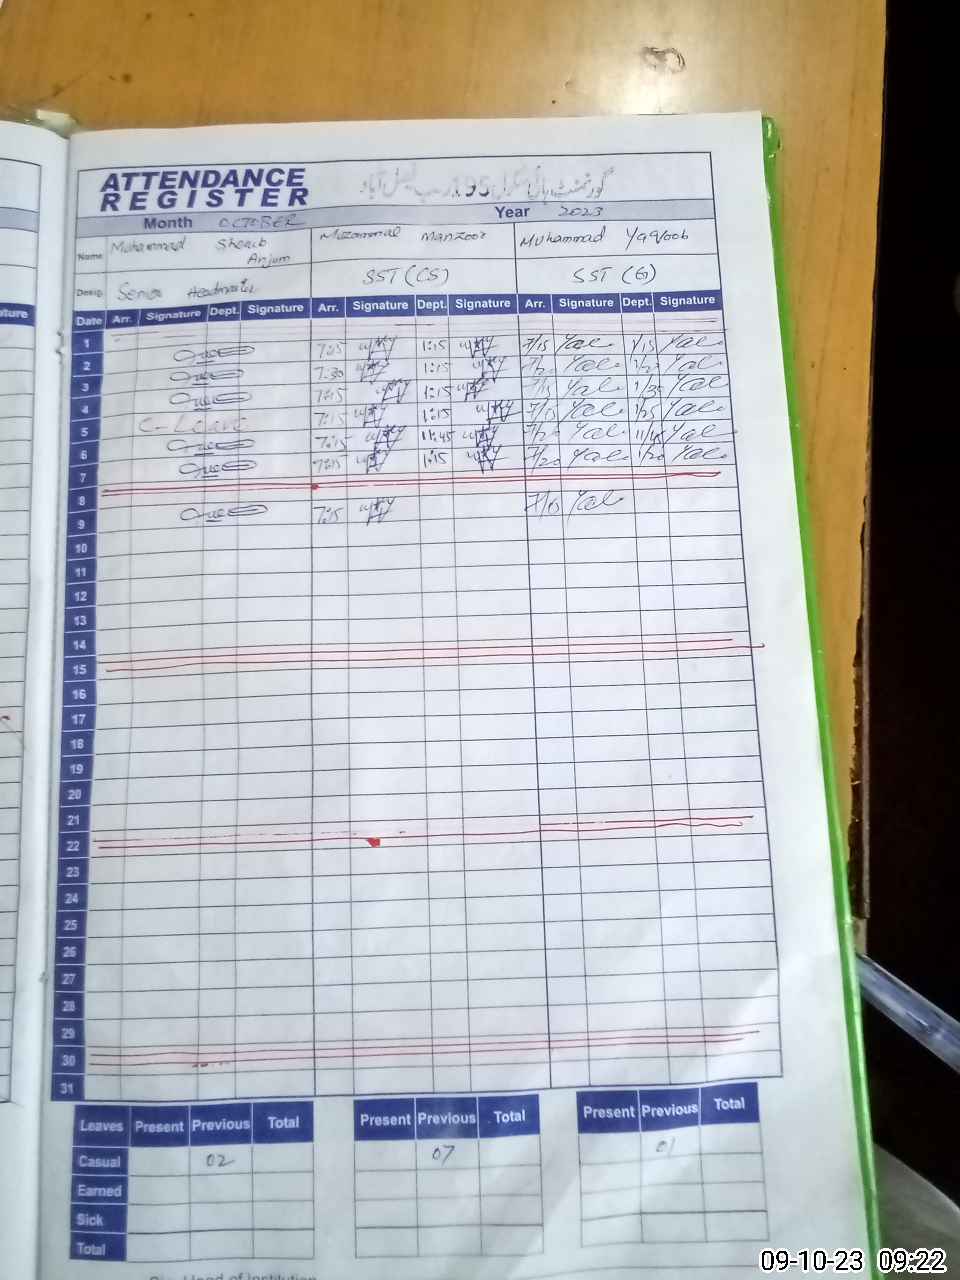 ATTENDANCE
REGISTER
گورنمنٹ ہائی سکول 195 رب فیصل آباد
Month OCTOBER Year 2023
Name Muhammad Shoaib Anjum Muzammal Manzoor Muhammad Yaqoob
Desig. Senior Headmaster SST (CS) SST (G)
Date Arr. Signature Dept. Signature Arr. Signature Dept. Signature Arr. Signature Dept. Signature
1
2 7:15 1:15 7/15 Yal 1/15 Yal
3 7:30 1:15 7/20 Yal 1/20 Yal
4 7:15 1:15 7/15 Yal 1/30 Yal
5 C-Leave 7:15 1:15 7/15 Yal 1/25 Yal
6 7:15 11:45 7/20 Yal 11/45 Yal
7 7:15 1:15 7/20 Yal 1/20 Yal
8
9 7:15 7/15 Yal
10
11
12
13
14
15
16
17
18
19
20
21
22
23
24
25
26
27
28
29
30
31
Leaves Present Previous Total Present Previous Total Present Previous Total
Casual 02 07 01
Earned
Sick
Total
Head of Institution
09-10-23 09:22